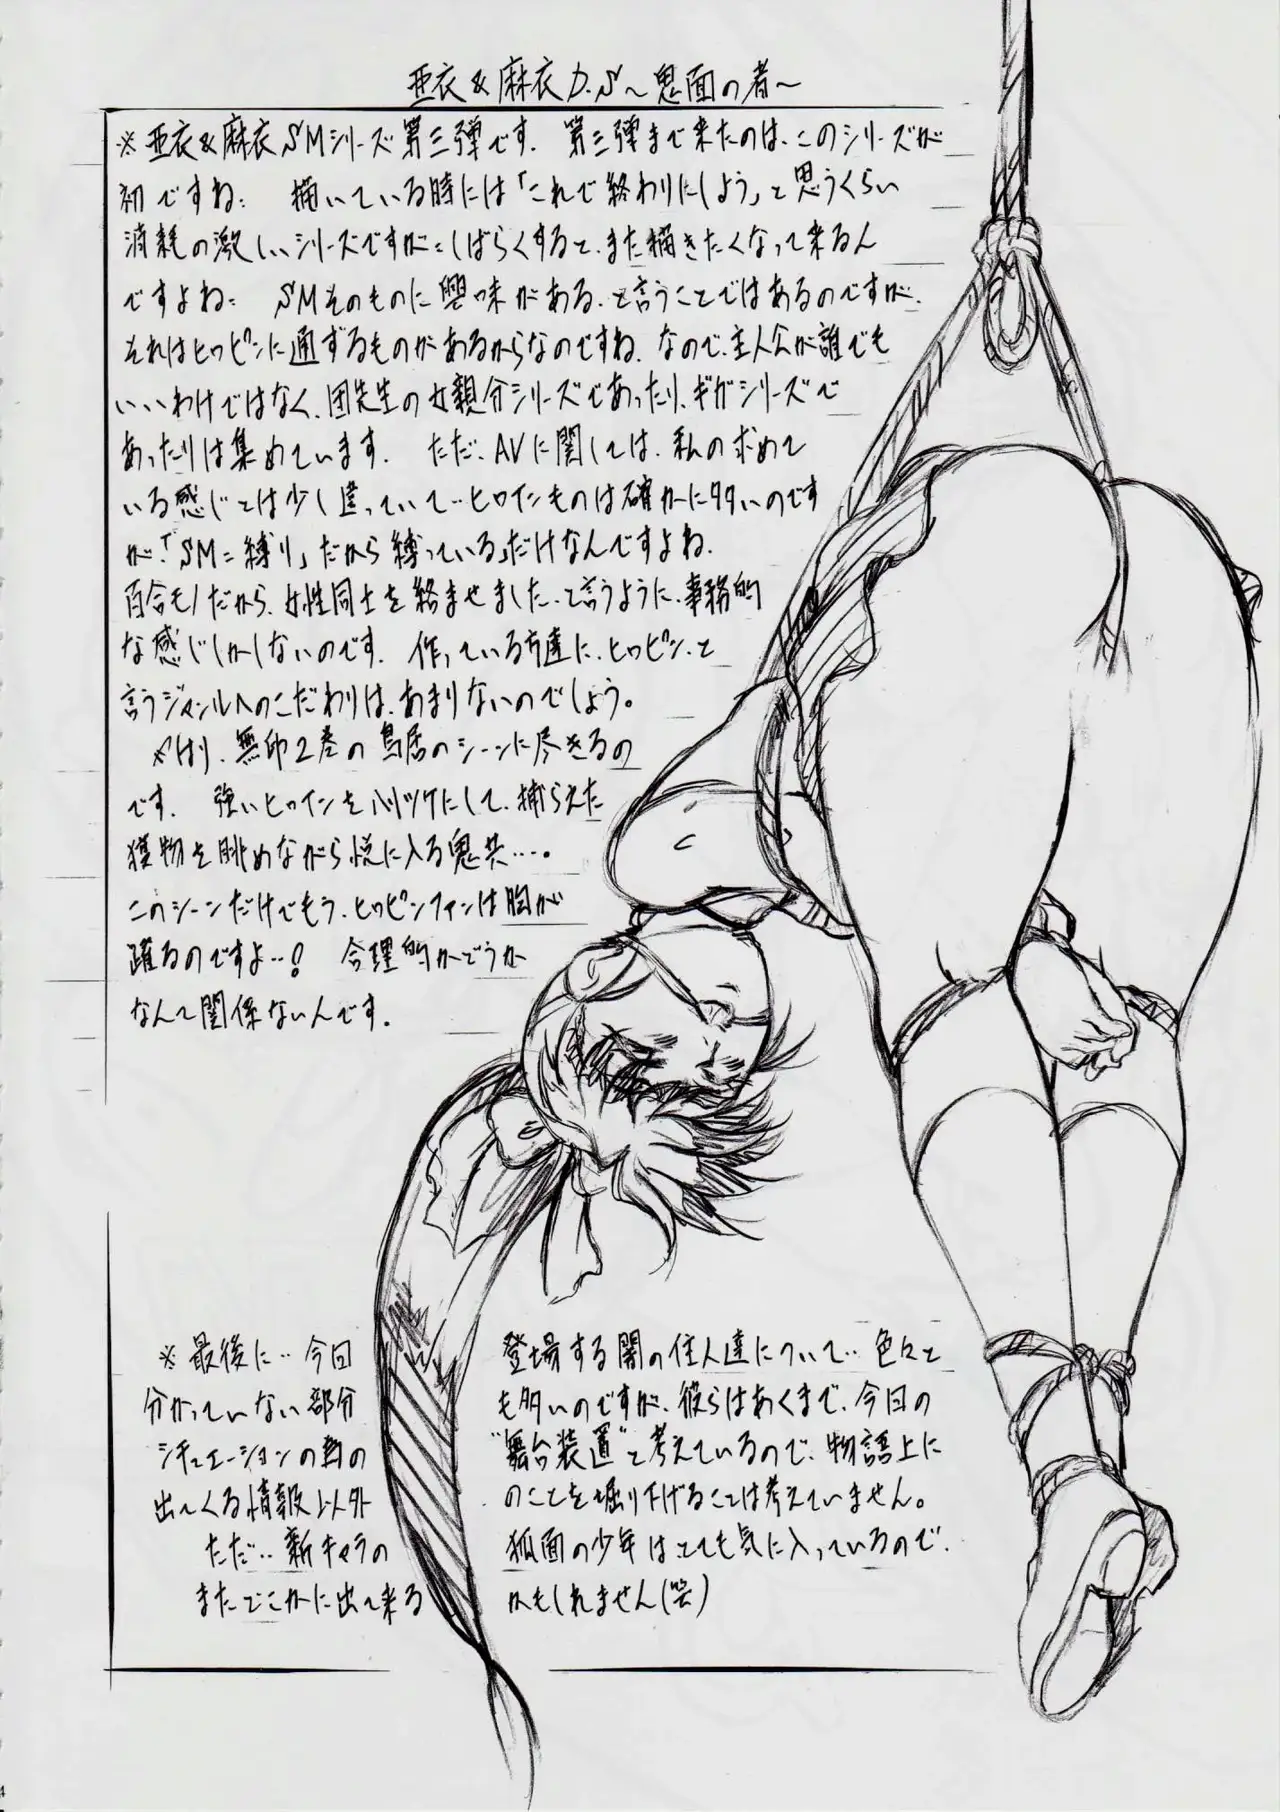 亜衣&麻衣D.S～鬼面の者～
※亜衣&麻衣SMシリーズ第三弾です。 第三弾まで来たのは、このシリーズが
初ですね… 描いている時には「これで終わりにしよう」と思うくらい
消耗の激しいシリーズですが…しばらくすると、また描きたくなって来るん
ですよね… SMそのものに興味がある、と言うことではあるのですが、
それはヒロピンに通ずるものがあるからなのですね。なので、主人公が誰でも
いいわけではなく、団先生の女親分シリーズであったり、ギガシリーズで
あったりは集めています。 ただ、AVに関しては、私の求めて
いる感じとは少し違っていて…ヒロインものは確かに多いのです
が、「SM=縛り」だから縛っている」だけなんですよね。
百合モノだから、女性同士を絡ませました、と言うように、事務的
な感じしかしないのです。作っている方達に、ヒロピン、と
言うジャンルへのこだわりは、あまりないのでしょう。
やはり、無印2巻の鳥居のシーンに尽きるの
です。 強いヒロインをハリツケにして、捕らえた
獲物を眺めながら悦に入る鬼共…。
このシーンだけでもう、ヒロピンファンは胸が
躍るのですよ…! 合理的かどうか
なんて関係ないんです。
※最後に…今回 登場する闇の住人達について… 色々と
分かっていない部分 も多いのですが、彼らはあくまで、今回の
シチュエーションの為の "舞台装置"と考えているので、物語上に
出てくる情報以外 のことを掘り下げることは考えていません。
ただ…新キャラの 狐面の少年はとても気に入っているので、
またどこかに出て来る かもしれません(笑)